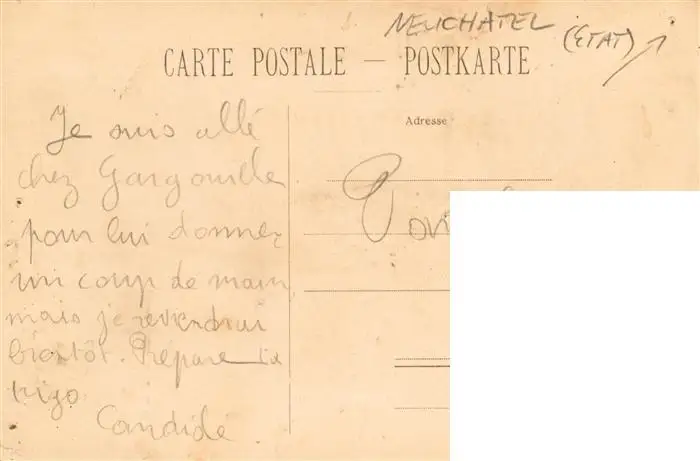 NEUCHATEL
(ETAT)
CARTE POSTALE — POSTKARTE
Adresse
Je suis allé
chez Gargouille
pour lui donner
un coup de main
mais je reviendrai
bientôt. Prépare
Candide